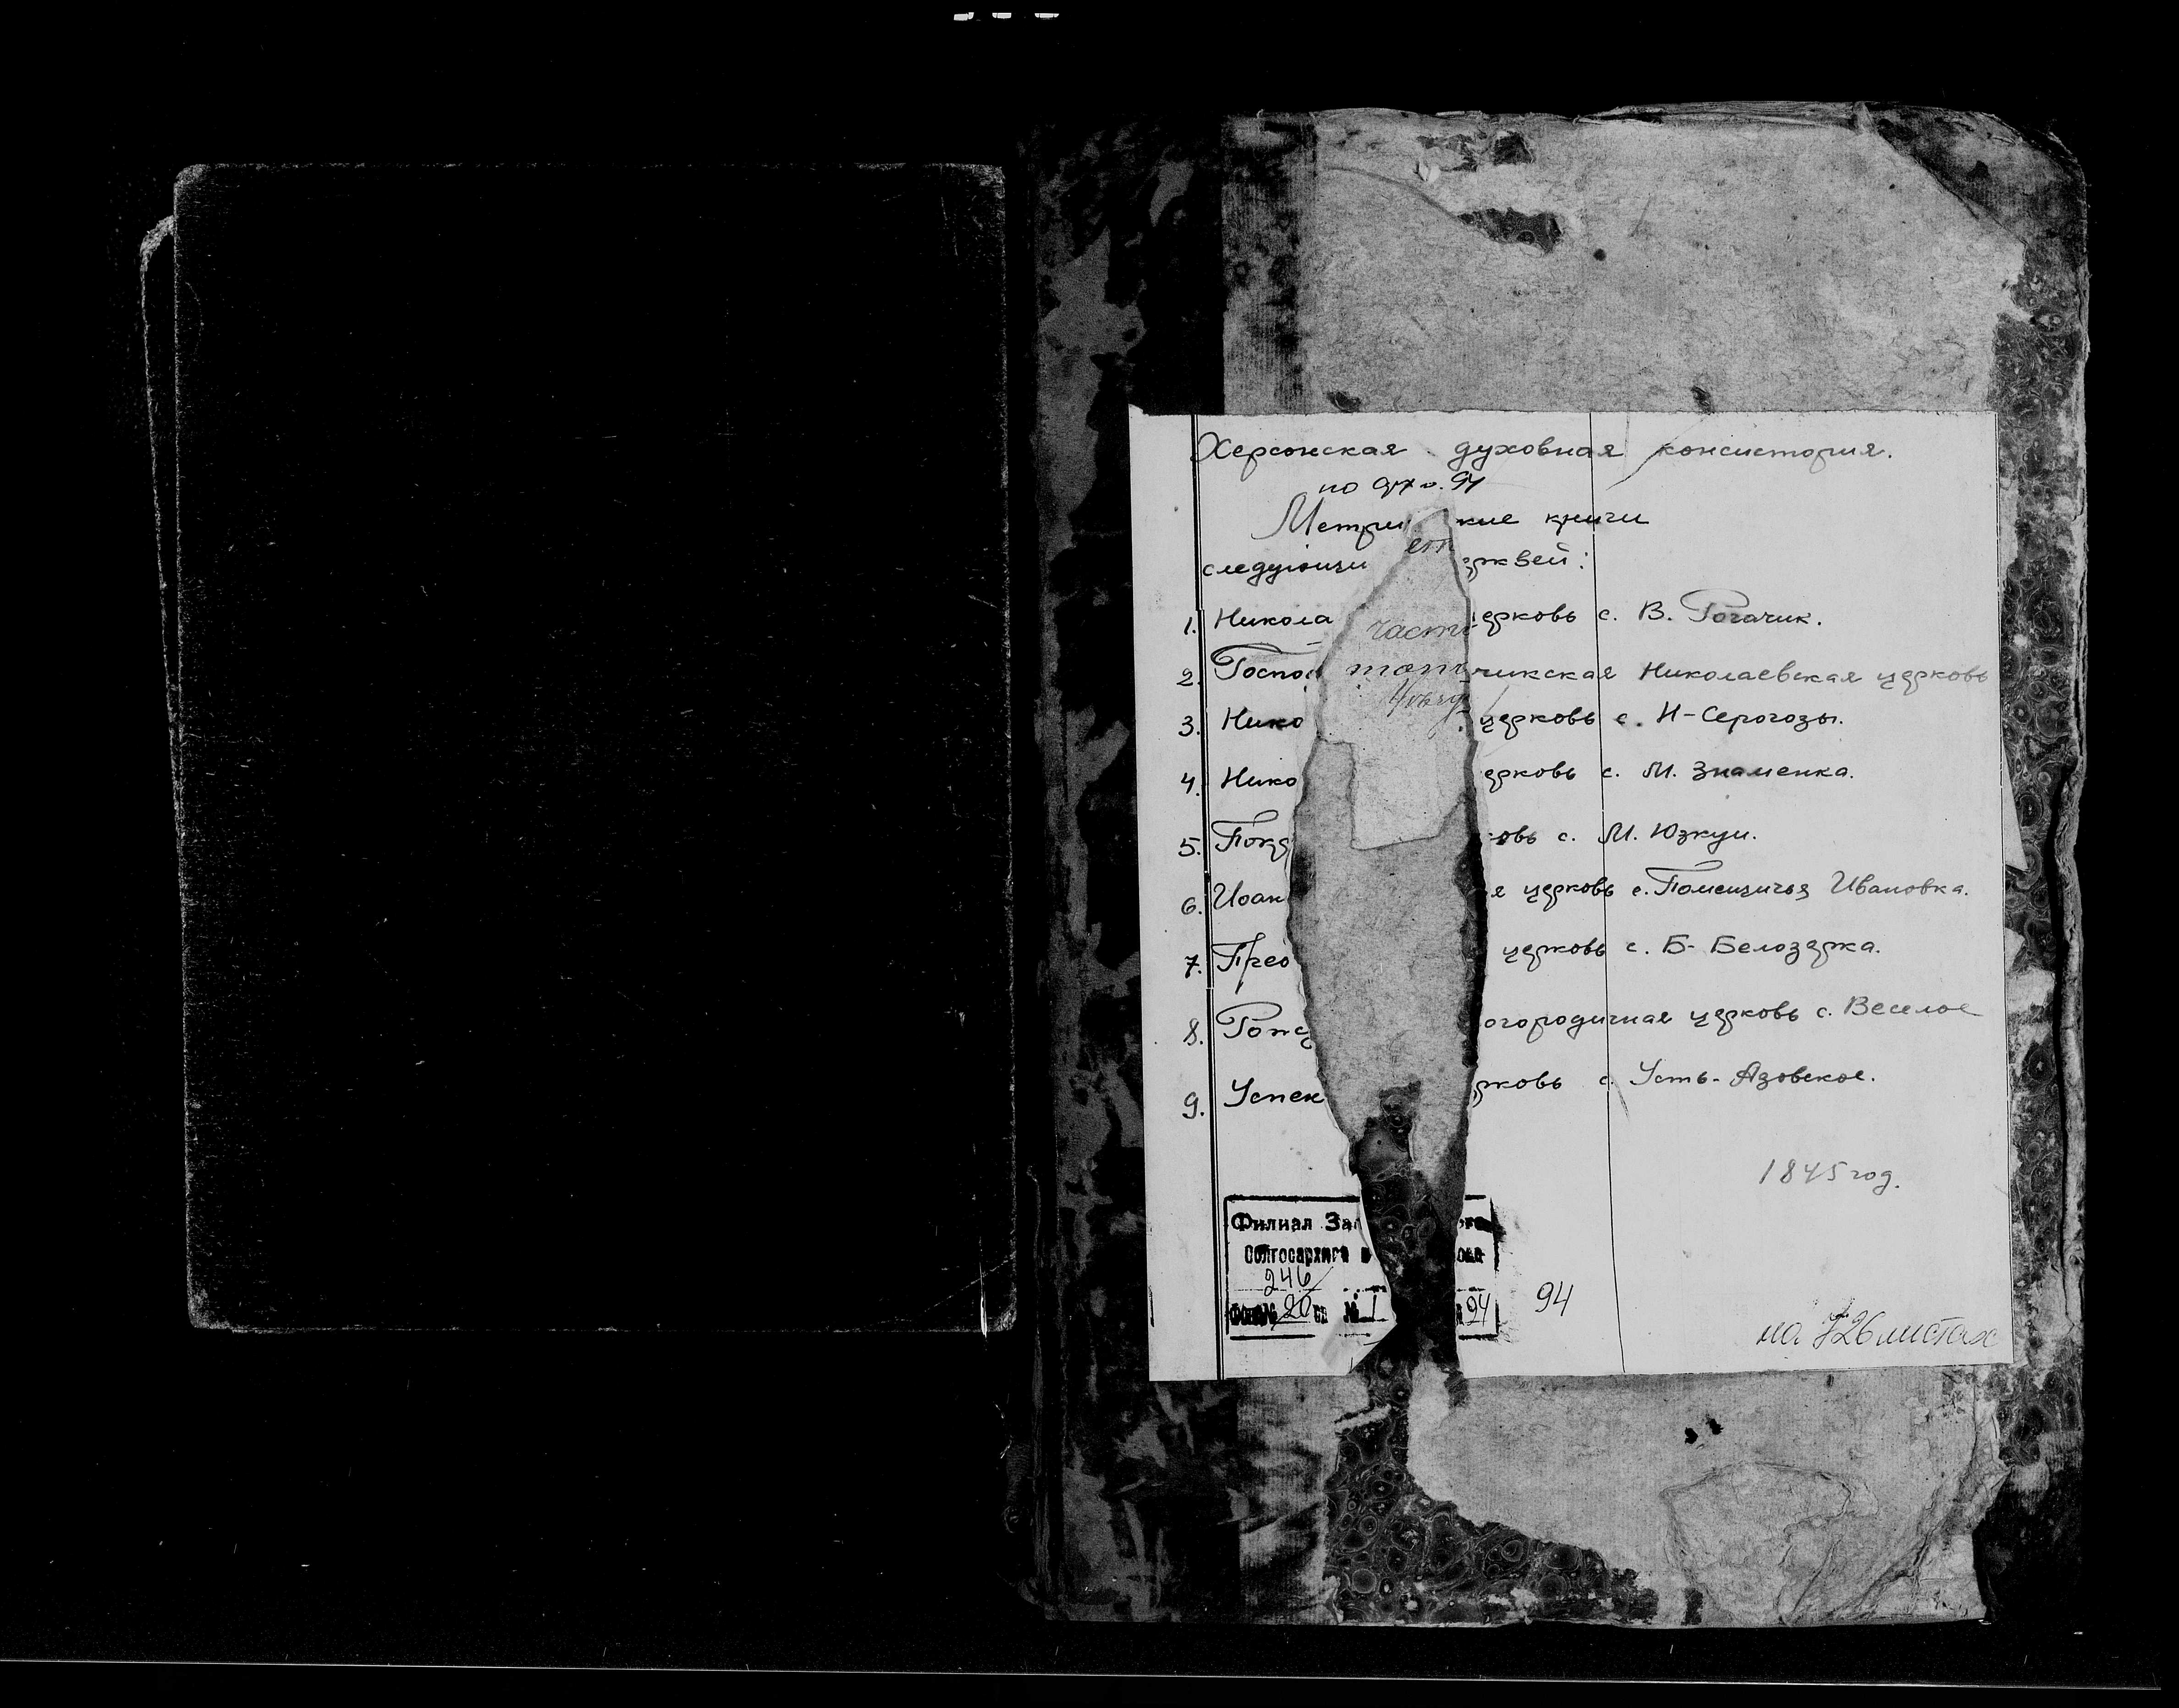 Херсонская духовная консистория.
по
Метри кие книги
следующи ерквей:
ет
1. Никола ерковь с. В. Рогачик.
части
2. Госпо чикская Николаевская церковь
3. Нико церковь с. Н-Серогозы.
4. Нико ерковь с. М. Знаменка.
5. Покр овь с. М. Юзкуи.
6. Иоан я церковь с. Помещичья Ивановка.
7. Прео церковь с. Б- Белозерка.
8. Рожд огородичная церковь с. Веселое
9. Успен рковь с. Усть-Азовское.
1845 год.
Филиал За
Облгосархива в
246
20 № 1 94
94
на 726 листах